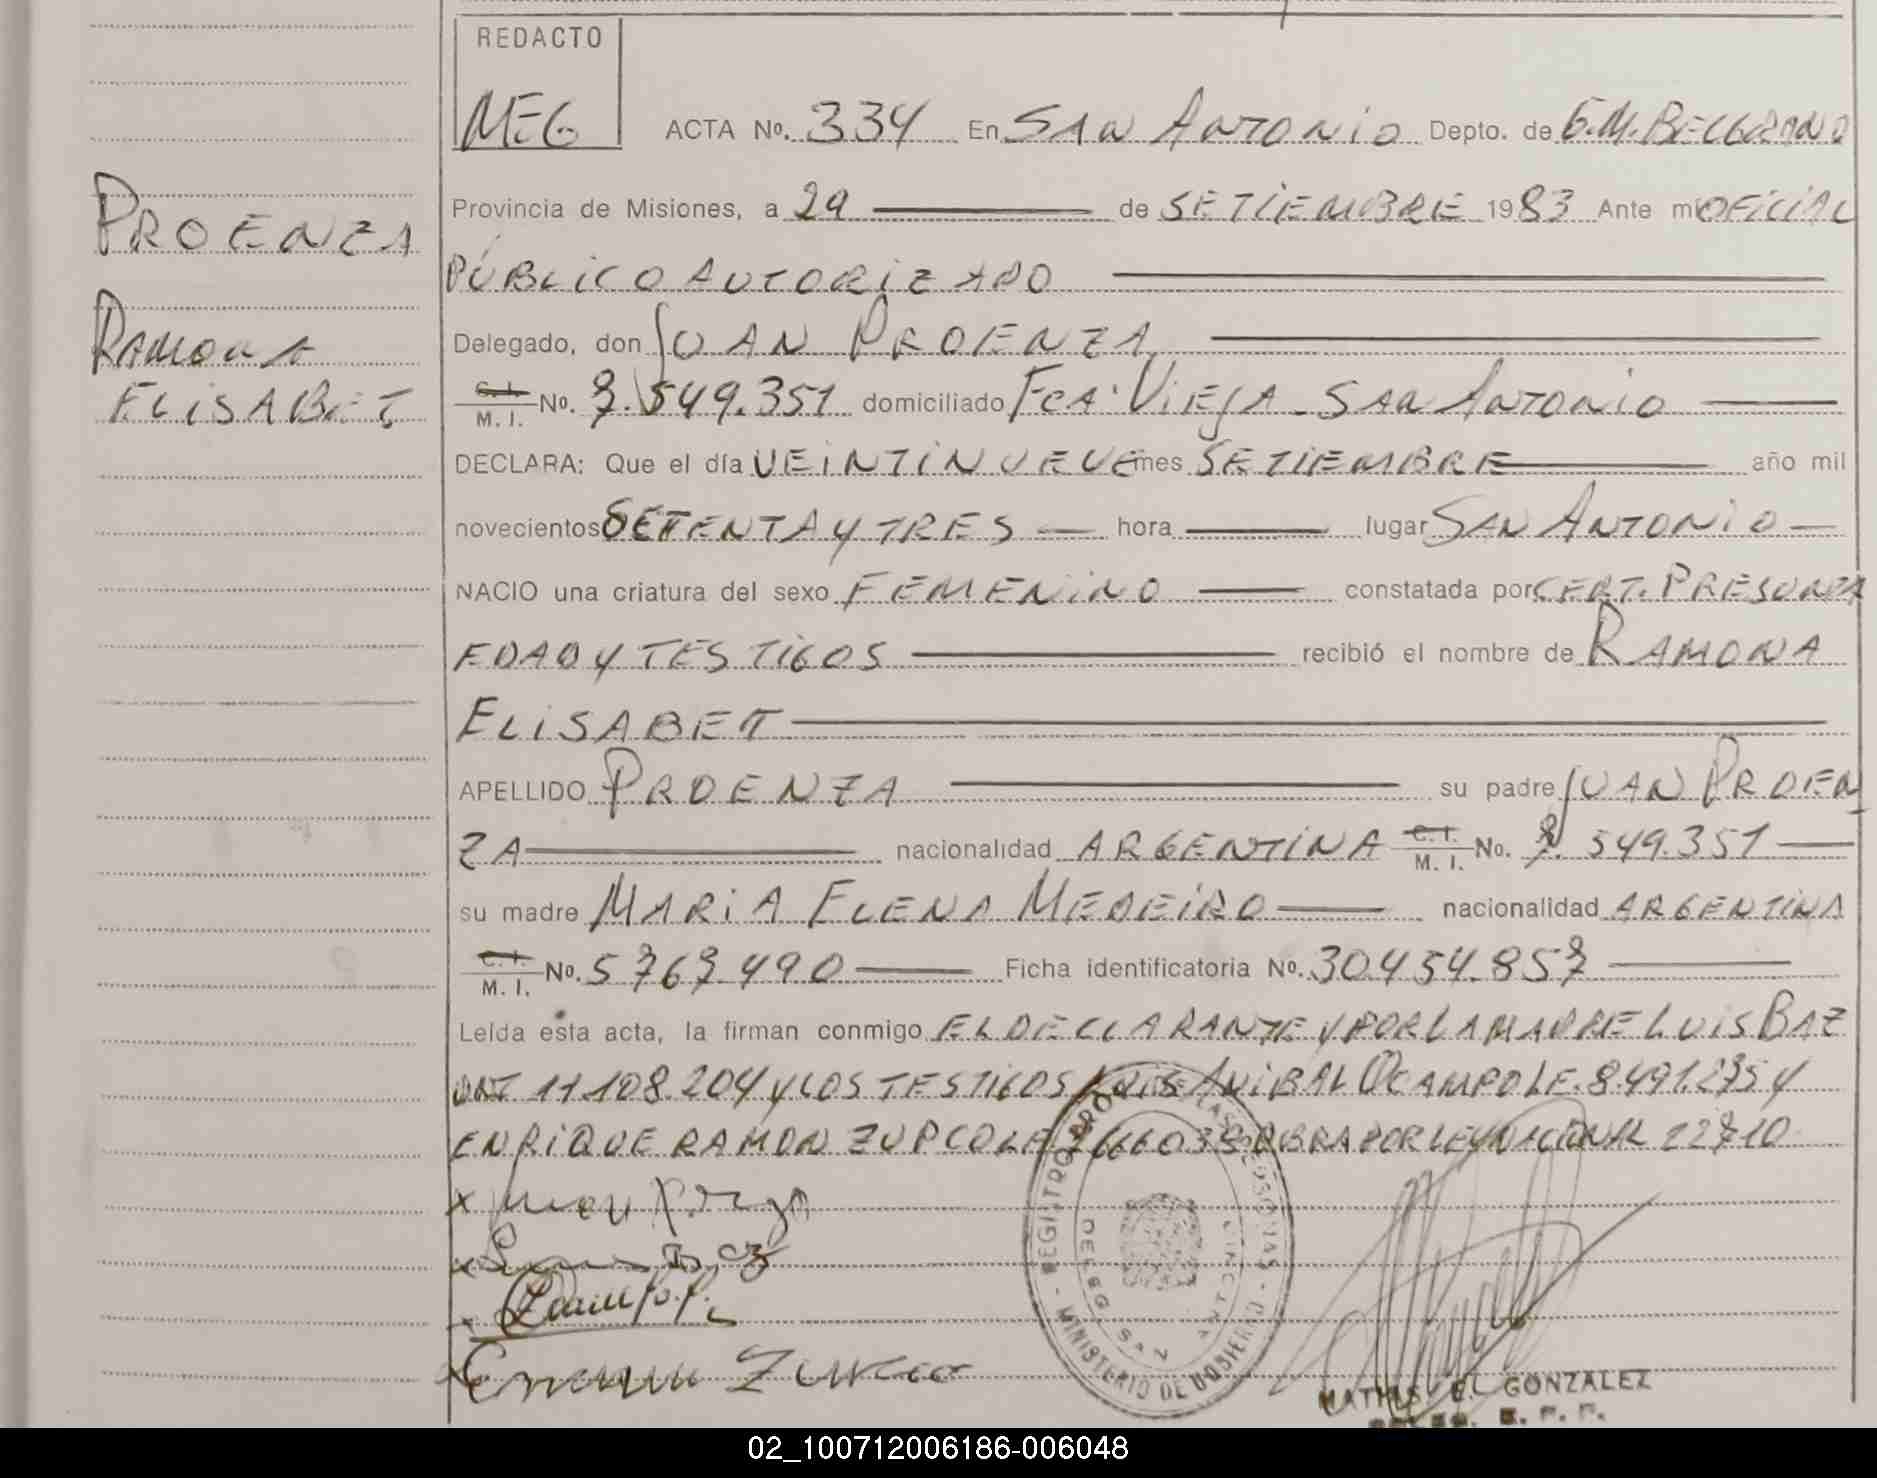 REDACTO
MEG
ACTA No. 334 En SAN ANTONIO Depto. de G.M. BELGRANO
Provincia de Misiones, a 29 de SETIEMBRE 1983 Ante mi OFICIAL
PROENZA
PÚBLICO AUTORIZADO
Delegado, don JUAN PROENZA
RAMONA
C. I. M. I. No. 7.549.351 domiciliado Fca. VIEJA - SAN ANTONIO
ELISABET
DECLARA: Que el día VEINTINUEVE mes SETIEMBRE año mil
novecientos SETENTA Y TRES hora lugar SAN ANTONIO
NACIO una criatura del sexo FEMENINO constatada por CERT. PRESUNTA
EDAD Y TESTIGOS recibió el nombre de RAMONA
ELISABET
APELLIDO PROENZA su padre JUAN PROEN
ZA nacionalidad ARGENTINA C. I. M. I. No. 7.549.351
su madre MARIA ELENA MEDEIRO nacionalidad ARGENTINA
C. I. M. I. No. 5767.490 Ficha identificatoria No. 30.454.857
Leída esta acta, la firman conmigo EL DECLARANTE Y POR LA MADRE LUIS BAZ
DNI 11.108.204 Y LOS TESTIGOS LUIS ANIBAL OCAMPO LE. 8.491.275 Y
ENRIQUE RAMON ZUPCO LE OBRA POR LEY NACIONAL 22710
REGISTRO PROV. DE LAS PERSONAS
MINISTERIO DE GOBIERNO
DELEG. SAN ANTONIO
MATIAS E. GONZALEZ
02_100712006186-006048